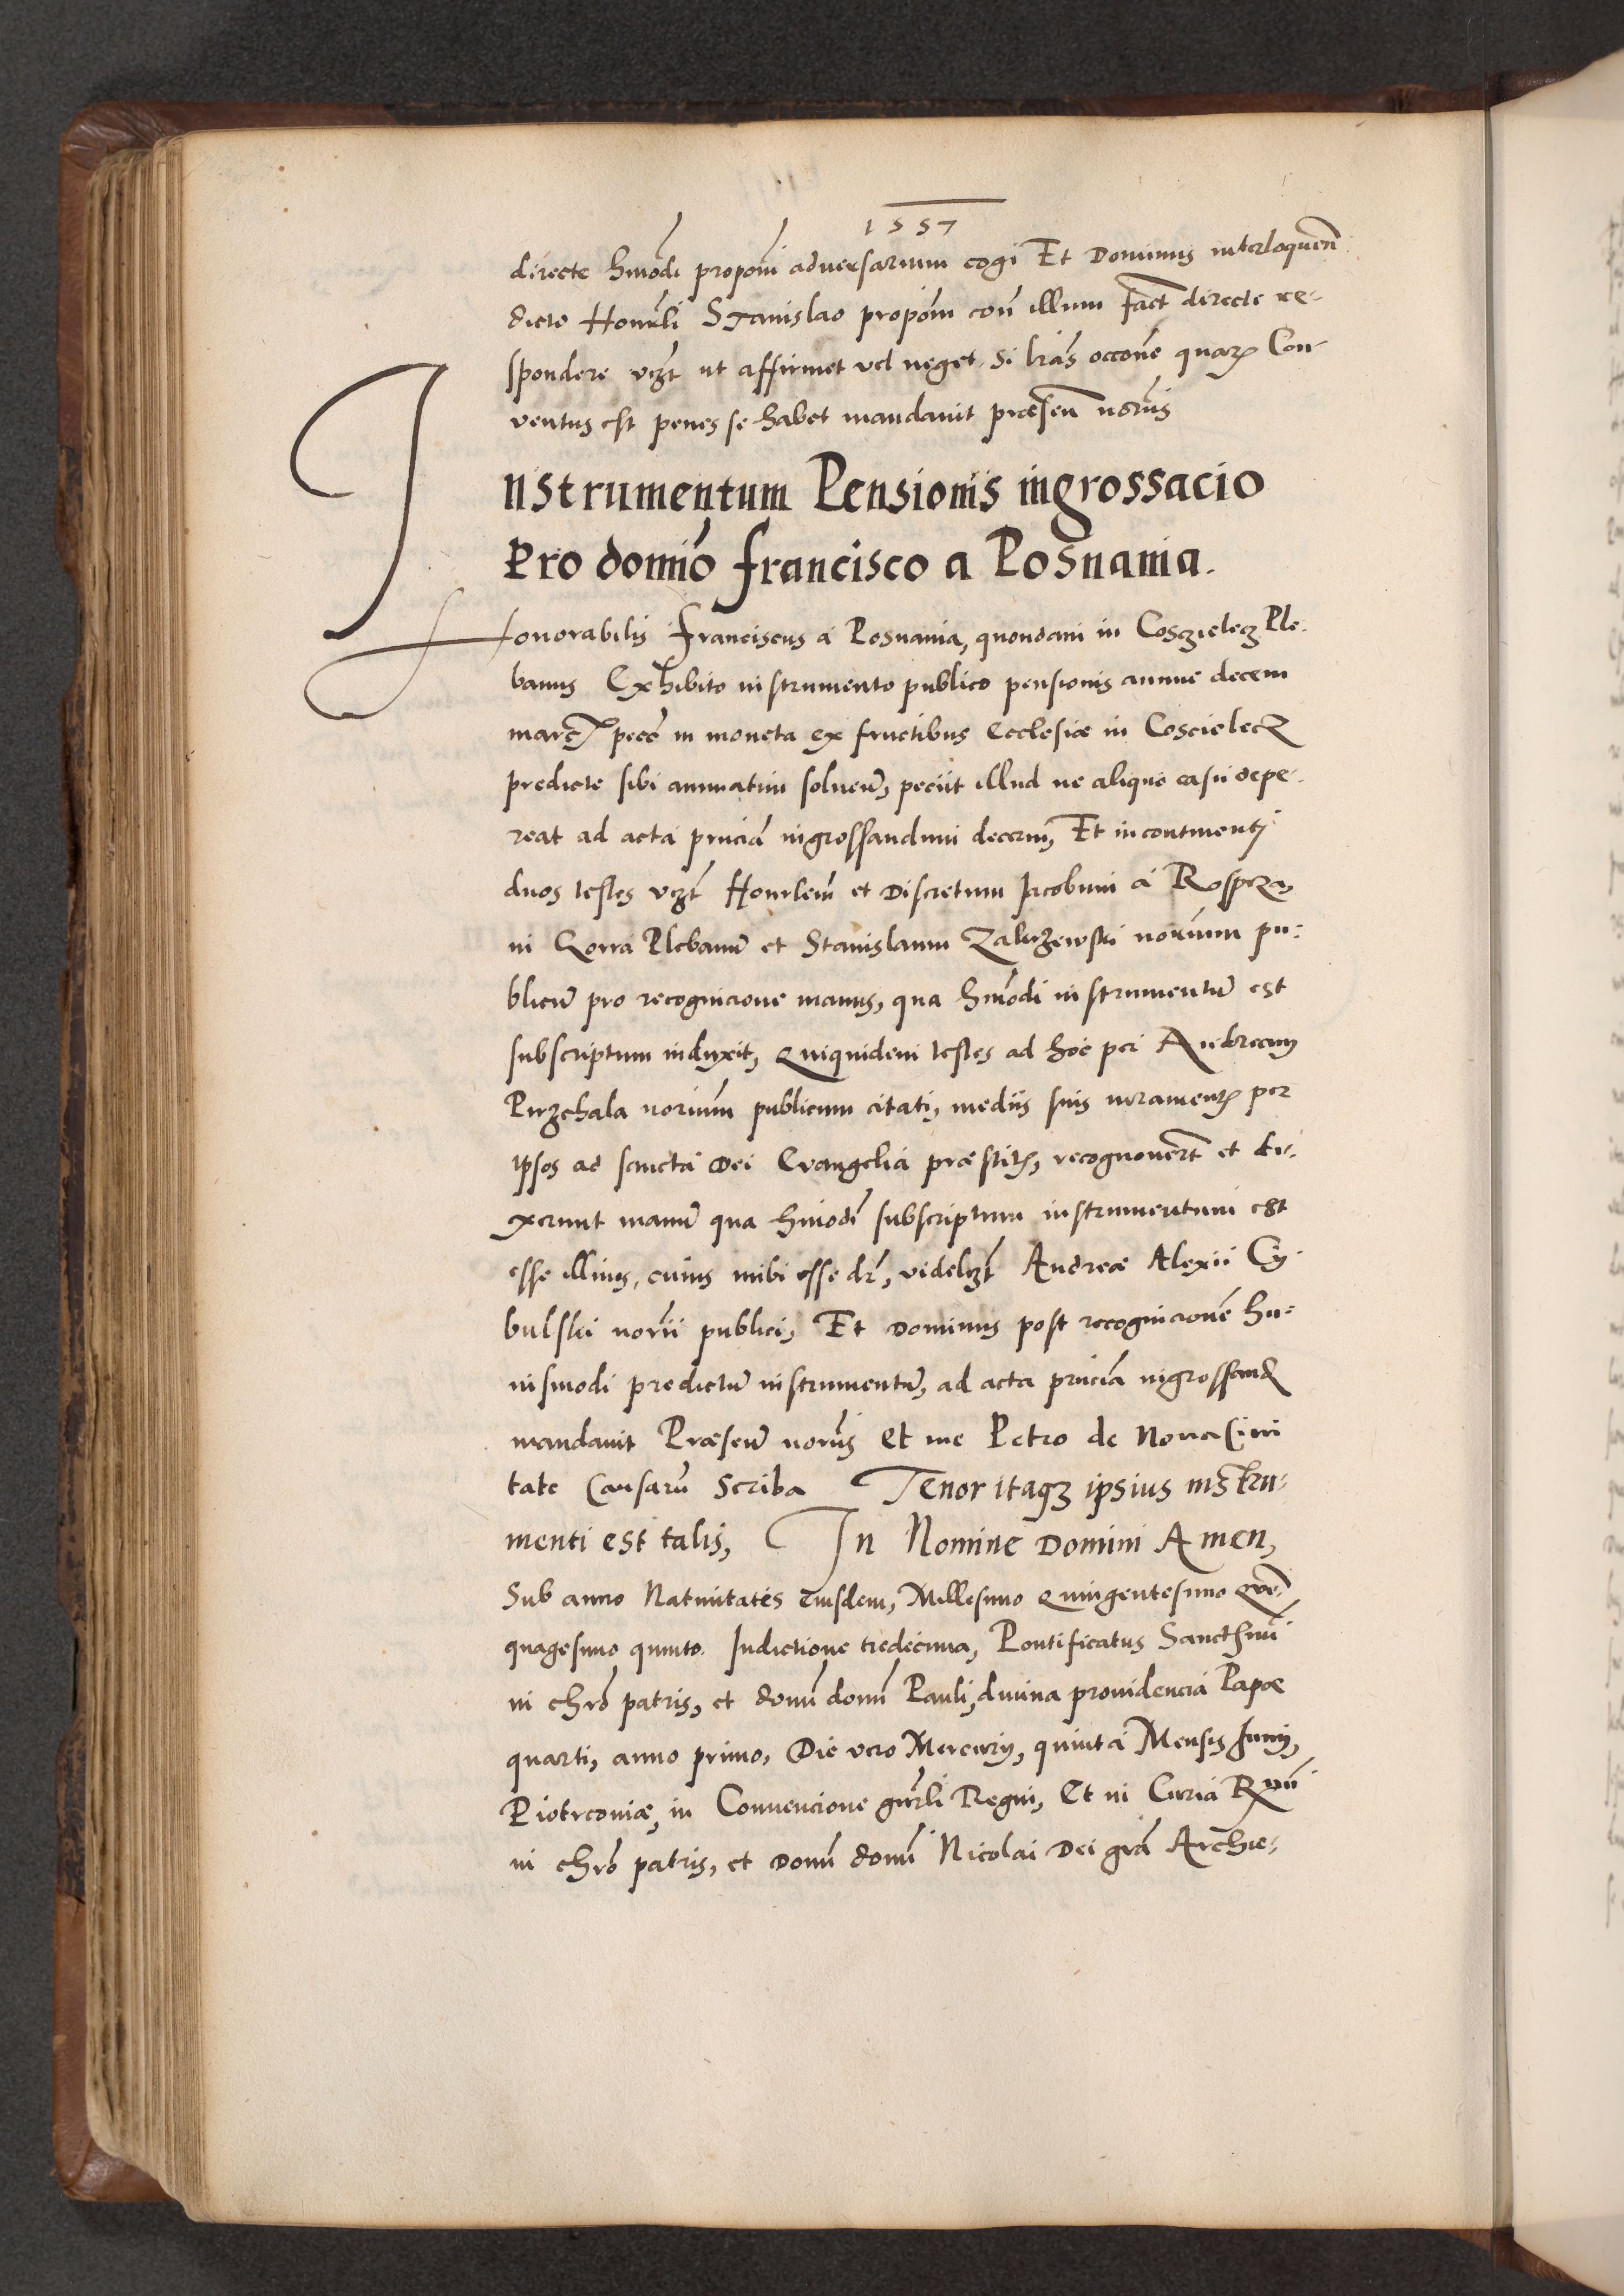 1557
directe hmõdi propoñi adversarium cogi Et Dominus interloqueñ
dicto Honrli Stanislao propoñi coñ illum fact directe re-
spondere vcȝt ut affirmet vel neget, Si lras occoñe quarꝝ Con-
ventus est penes se habet mandavit præseñ notrijs
Instrumentum Pensionis ingrossacio
Pro domio Francisco a Posnania.
Honorabilis Franciscus á Posnania, quondam in Cosczielecz Ple-
banus Exhibito instrumento publico pensionis annue decem
marcꝝ pecc in moneta ex fructibus Ecclesiæ in Coscielecz
predicte sibi annuatim solveñ, peciit illud ne aliquo casu depe-
reat ad acta pñcia ingrossandum decerni, Et incontinenti
duos testes vcȝt Honrlem et Discretum Jacobum á Rospcza,
in Gorra Plebanũ et Stanislaum Zaluzewski notrium pu-
blicũ pro recognicione manus, qua hmõdi instrumentũ est
subscriptum induxit, Quiquidem testes ad hoc per Andream
Przechala notrium publicum citati, mediis suis iuramentꝭ per
ipsos ad sancta Dei Evangelia præstitꝭ, recognoverũt et di-
xerunt manũ qua hmõdi subscriptum instrumentum est
esse illius, cuius inibi esse dr̃, videlicȝt Andreæ Alexii Cy-
bulski notrii publici, Et Dominus post recognicionẽ hu-
iusmodi predictũ instrumentũ, ad acta pñcia ingrossand
mandavit Præseñ notrijs Et me Petro de Nova Civi
tate Causarũ Scriba Tenor itaqȝ ipsius instru-
menti est talis, In Nomine Domini Amen,
Sub anno Nativitatis eiusdem, Millesimo Quingentesimo Quĩ-
quagesimo quinto. Indictione tredecima, Pontificatus Sanctssimi
in chro patris, et domñ domñ Pauli, divina providencia Papæ
quarti, anno primo, Die vero Mercurij, quinta Mensis Junij,
Piotrconiæ, in Convencione gnrli Regni, Et in Curia Rmi
in chro patris, et Domñ domñ Nicolai Dei gra Archie-